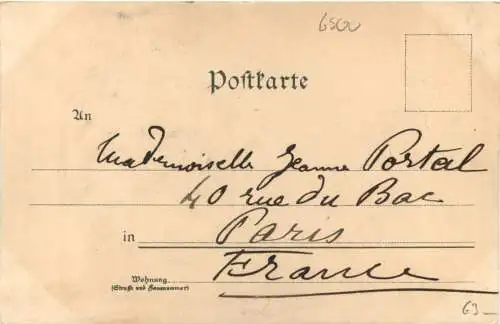 6500
Postkarte
An
Mademoiselle Jeanne Portal
40 rue du Bac
in Paris
France
Wohnung
(Straße und Hausnummer)
63